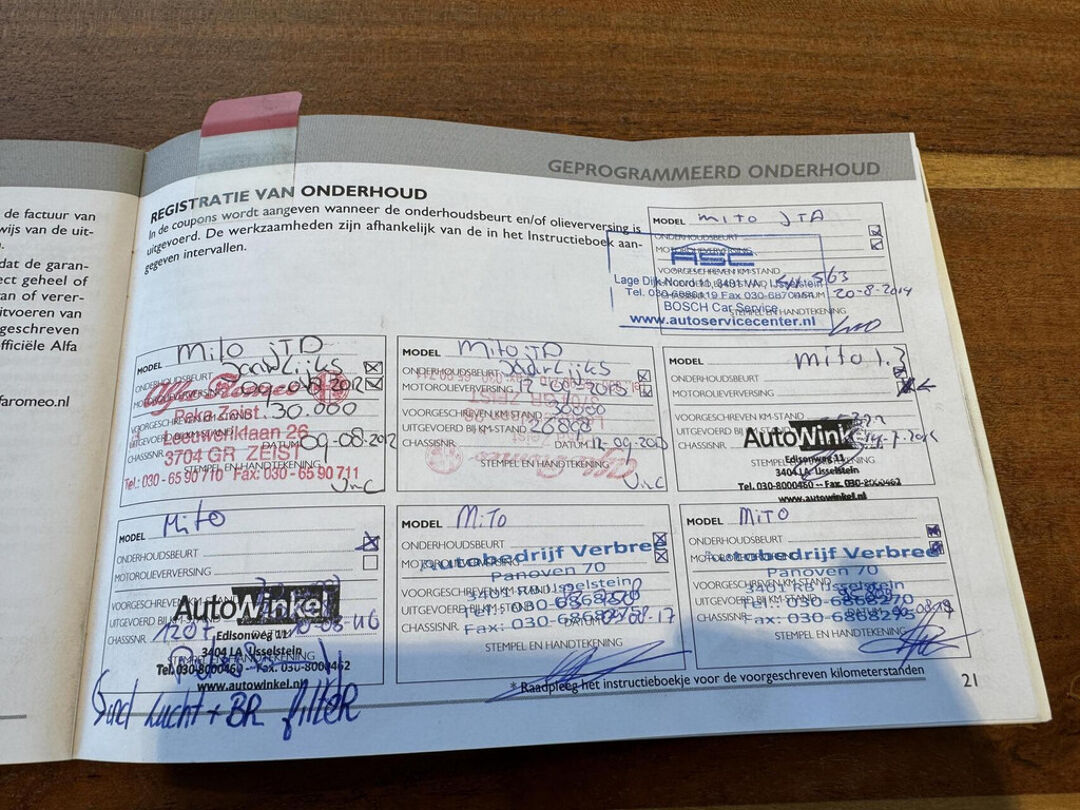 de factuur van
wijs van de uit-
dat de garan-
ect geheel of
an of verer-
itvoeren van
geschreven
fficiële Alfa
faromeo.nl
GEPROGRAMMEERD ONDERHOUD
REGISTRATIE VAN ONDERHOUD
In de coupons wordt aangeven wanneer de onderhoudsbeurt en/of olieverversing is
uitgevoerd. De werkzaamheden zijn afhankelijk van de in het Instructieboek aan-
gegeven intervallen.
MODEL mito JTA
ONDERHOUDSBEURT
MOTOROLIEVERVERSING
ASC
VOORGESCHREVEN KM-STAND
Lage Dijk-Noord 11, 3401 VA IJsselstein
Tel. 030-6880119 Fax 030-68
20-8-2014
BOSCH Car Service
STEMPEL EN HANDTEKENING
www.autoservicecenter.nl
MODEL Mito JTD
ONDERHOUDSBEURT
MOTOROLIEVERVERSING 09-08-2012
Alfa Romeo
Reka Zeist 30.000
VOORGESCHREVEN KM-STAND
Leeuweriklaan 26
UITGEVOERD BIJ KM-STAND
CHASSISNR. DATUM 09-08-2012
3704 GR ZEIST
STEMPEL EN HANDTEKENING
Tel.: 030 - 65 90 710 Fax: 030 - 65 90 711
MODEL Mito JTD
ONDERHOUDSBEURT Jaarlijks
MOTOROLIEVERVERSING
VOORGESCHREVEN KM-STAND 30000
UITGEVOERD BIJ KM-STAND 26868
CHASSISNR. DATUM 12-09-2013
STEMPEL EN HANDTEKENING
MODEL mito 1.3
ONDERHOUDSBEURT
MOTOROLIEVERVERSING
VOORGESCHREVEN KM-STAND
UITGEVOERD BIJ KM-STAND
AutoWinkel
CHASSISNR.
Edisonweg 11
STEMPEL EN HANDTEKENING
3404 LA IJsselstein
Tel. 030-8000460 -- Fax. 030-8000462
www.autowinkel.nl
MODEL Mito
ONDERHOUDSBEURT
MOTOROLIEVERVERSING
VOORGESCHREVEN KM-STAND
AutoWinkel
UITGEVOERD BIJ KM-STAND
CHASSISNR.
Edisonweg 11
3404 LA IJsselstein
STEMPEL EN HANDTEKENING
Tel. 030-8000460 -- Fax. 030-8000462
www.autowinkel.nl
lucht + BR filter
MODEL MiTO
ONDERHOUDSBEURT
Autobedrijf Verbree
MOTOROLIEVERVERSING
Panoven 70
VOORGESCHREVEN KM-STAND
3401 RB IJsselstein
UITGEVOERD BIJ KM-STAND
Tel.: 030-6868270
CHASSISNR.
Fax: 030-6868275
STEMPEL EN HANDTEKENING
MODEL MiTO
ONDERHOUDSBEURT
Autobedrijf Verbree
MOTOROLIEVERVERSING
Panoven 70
VOORGESCHREVEN KM-STAND
3401 RB IJsselstein
UITGEVOERD BIJ KM-STAND
Tel.: 030-6868270
CHASSISNR.
Fax: 030-6868275
STEMPEL EN HANDTEKENING
* Raadpleeg het instructieboekje voor de voorgeschreven kilometerstanden
21